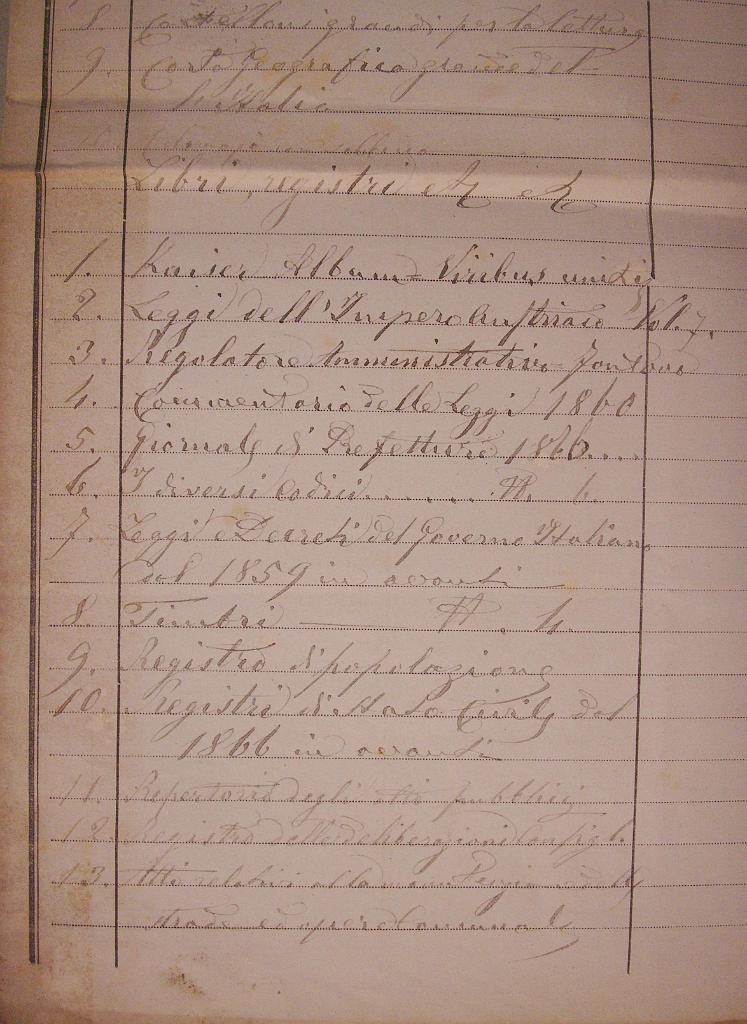 8. Cartelloni grandi per la lettura
9. Carta Geografica grande del
l'Italia
Libri, registri & &
1. Kaiser Album = Viribus unitis
2. Leggi dell'Impero Austriaco Vol. 7.
3. Regolatore Amministrativo
4. Commentario delle Leggi 1860
5. Giornale di Prefettura 1866....
6. I diversi Codici....... N. 6.
7. Leggi e Decreti del Governo Italiano
dal 1859 in avanti
8. Timbri — N. 4.
9. Registro di popolazione
10. Registri di Stato Civile dal
1866 in avanti
11. Repertorio degli atti pubblici
12. Registro delle deliberazioni Consigl.
13. Atti relativi alla
strade ed opere Comunali